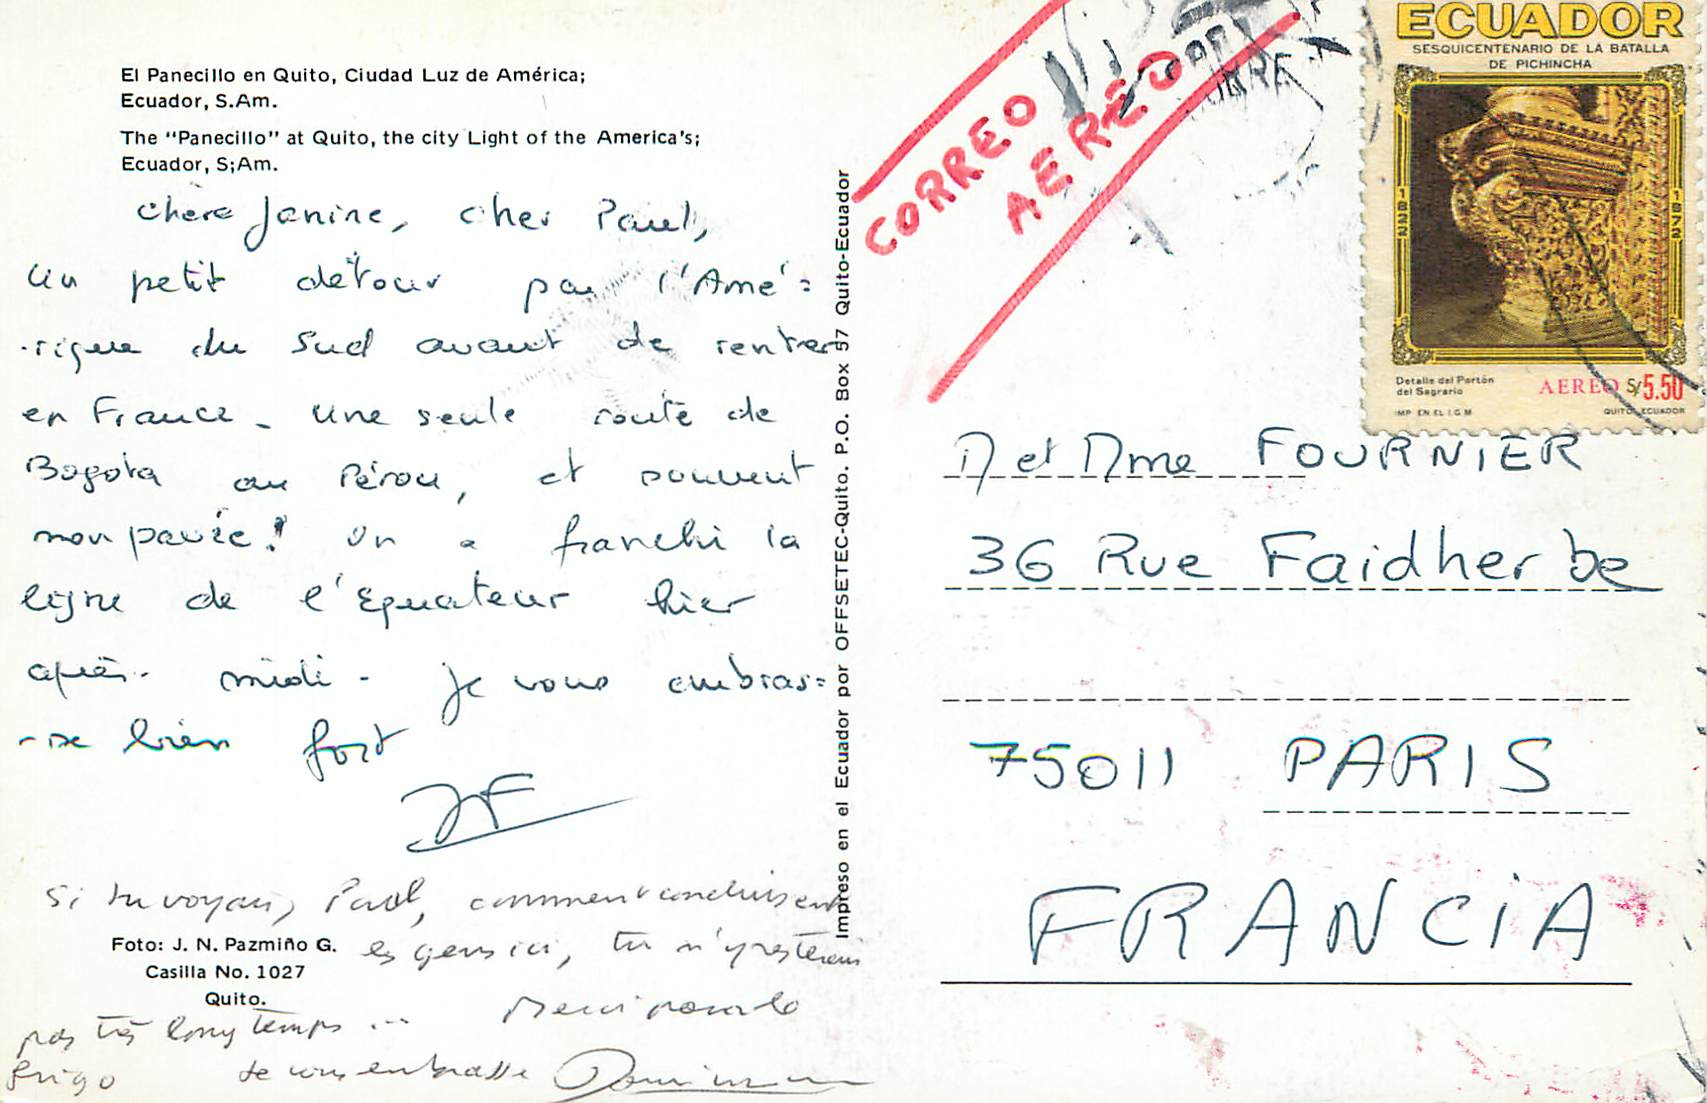 El Panecillo en Quito, Ciudad Luz de América;
Ecuador, S.Am.
The "Panecillo" at Quito, the city Light of the America's;
Ecuador, S;Am.
chère Janine, cher Paul,
Un petit détour par l'Amé=
-rique du Sud avant de rentrer
en France - Une seule route de
Bogota au Pérou, et souvent
non pavée! On a franchi la
ligne de l'Equateur hier
après-midi - Je vous embras=
-se bien fort
JF
Si tu voyais, Paul, comment conduisent
les gens ici, tu n'y resterais
pas très longtemps ... Merci pour le
frigo Je vous embrasse Dominique
Foto: J. N. Pazmiño G.
Casilla No. 1027
Quito.
Impreso en el Ecuador por OFFSETEC-Quito. P.O. Box 97 Quito-Ecuador
CORREO
AEREO
ECUADOR
SESQUICENTENARIO DE LA BATALLA
DE PICHINCHA
1822
1972
Detalle del Portón
del Sagrario
AEREO S/5.50
IMP. EN EL I.G.M
QUITO, ECUADOR
M et Mme FOURNIER
36 Rue Faidherbe
75011 PARIS
FRANCIA